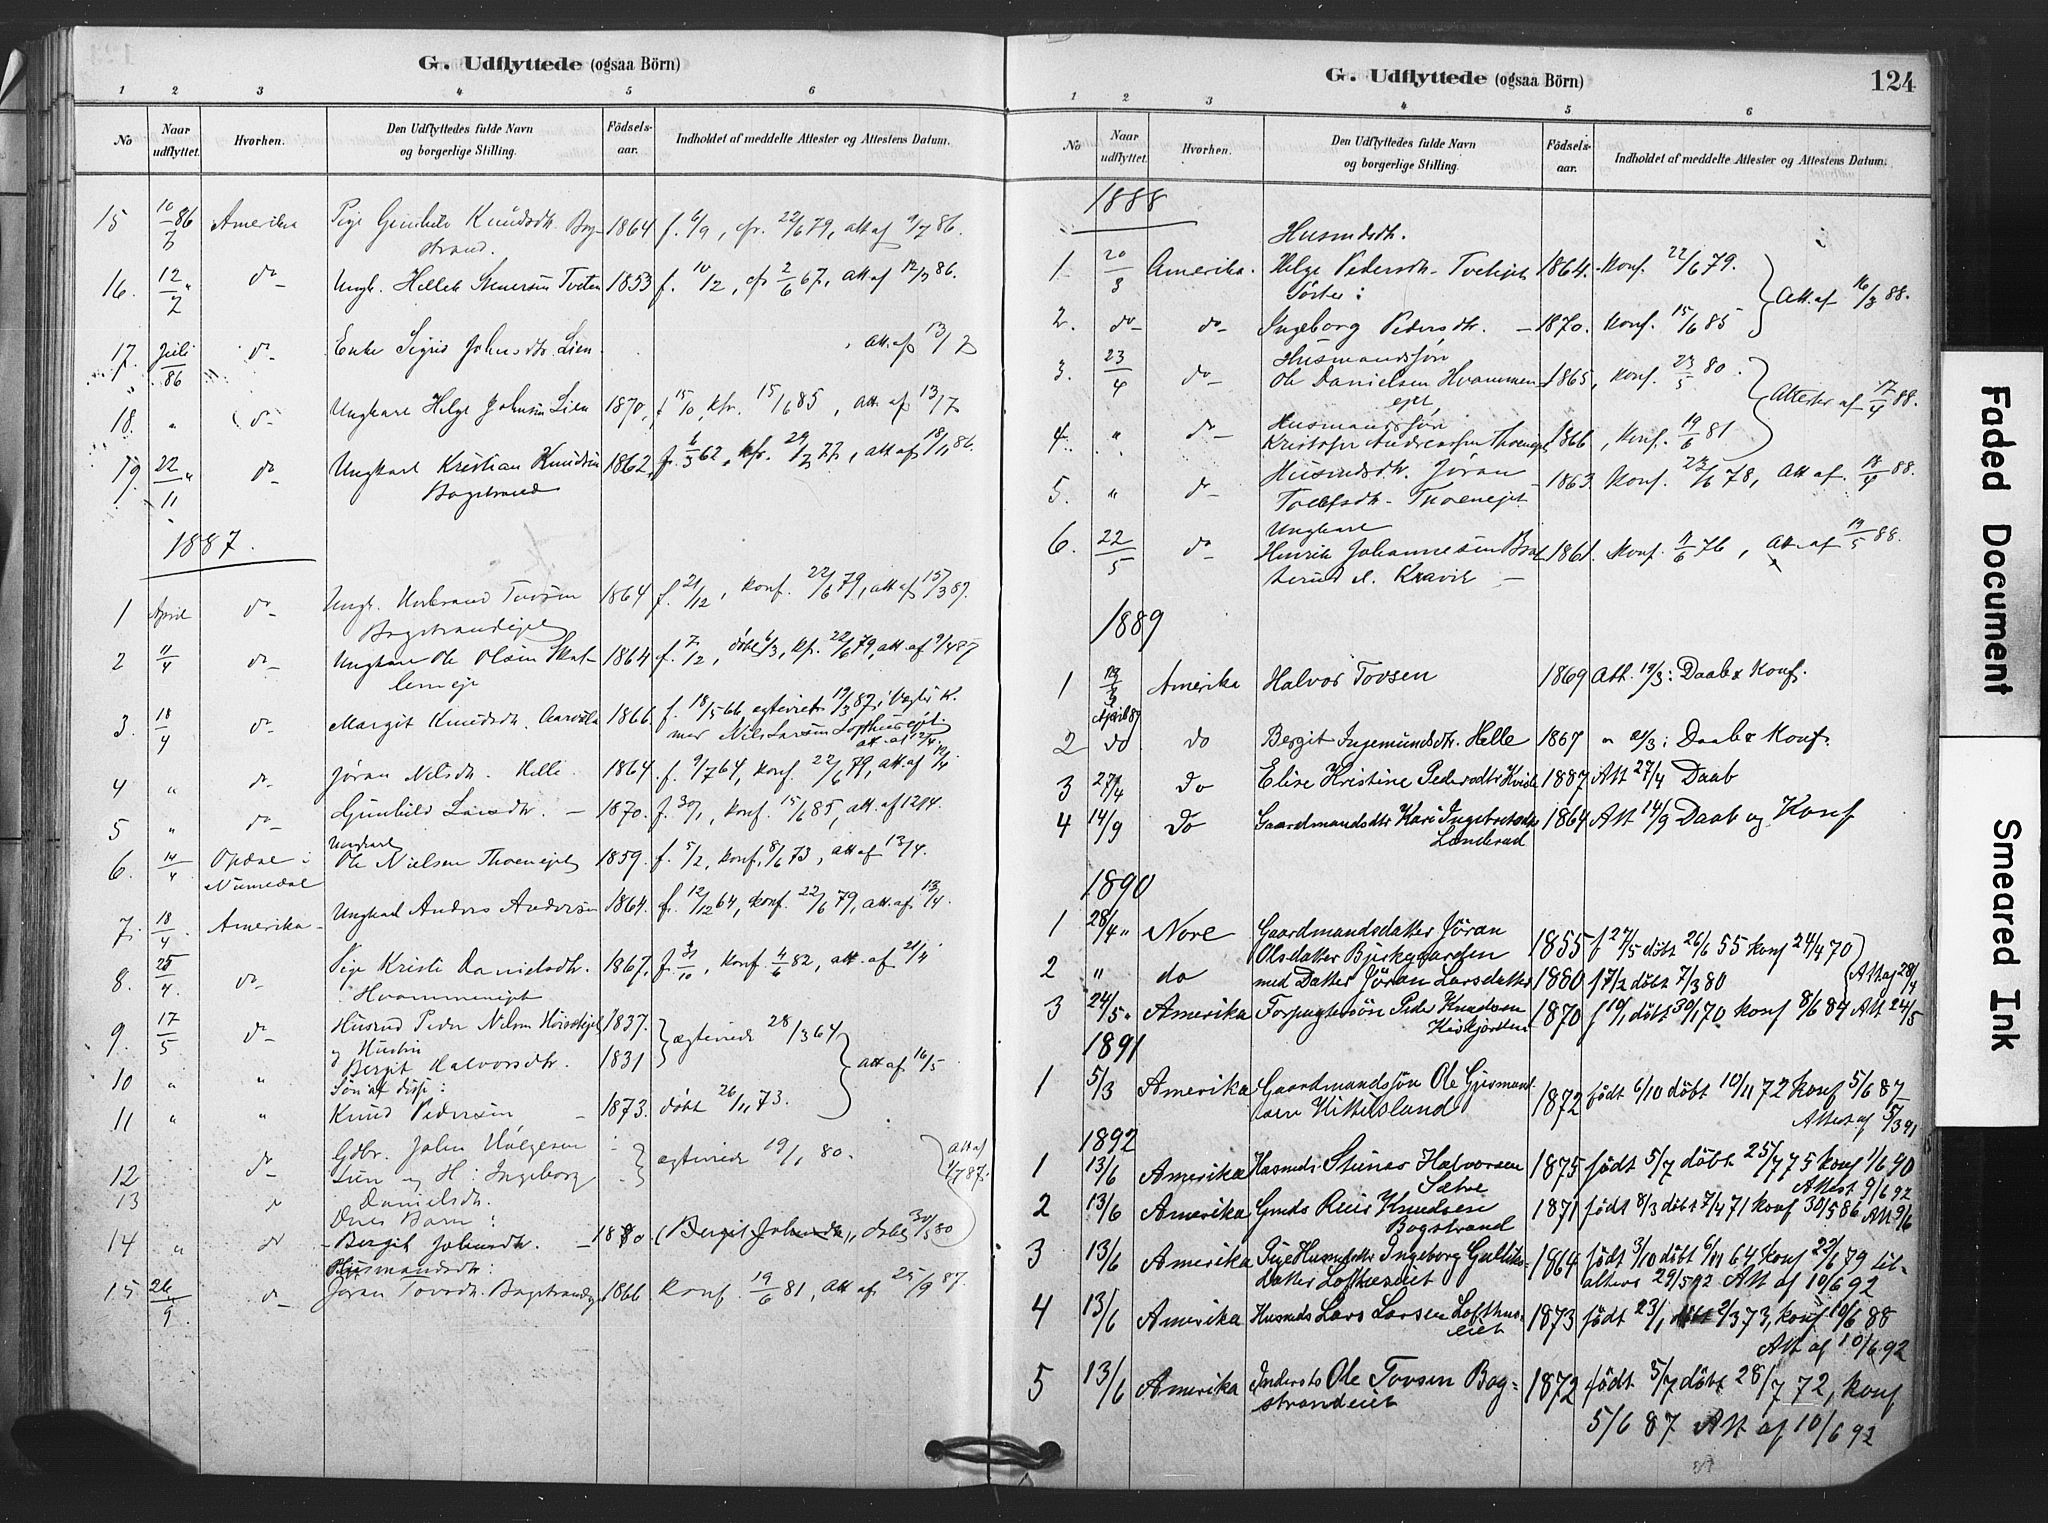 G. Udflyttede (ogsaa Börn)
1 2 3 4 5 6
No Naar udflyttet. Hvorhen. Den Udflyttedes fulde Navn og borgerlige Stilling. Födsels-aar. Indholdet af meddelte Attester og Attestens Datum.
15 10/5 86 Amerika Pige Gunhild Knudsdtr. Bog- 1864 f. 6/9, cfr. 22/6 79, att af 9/7 86.
strand.
16. 12/7 " do Ungk. Hellek Stenersen Tveten 1853 f. 10/12, cfr 2/6 67, att af 12/7 86.
17. Juli 86 do Enke Sigrid Johnsdtr. Lien. , att. af 13/7
18. " do Ungkarl Helge Johnsen Lien 1870, f 15/10, kfr. 15/6 85, att. af 13/7
19. 22/11 " do Ungkarl Kristian Knudsen 1862, f. 6/3 62, kfr. 24/6 77, att. af 18/11 86.
Bogstrand
1887.
1 April do Ungk. Tovsen 1864 f. 21/12, konf. 22/6 79, att af 15/3 87.
Bogstrandejet
2 11/4 do Ungkarl Ole Olsen 1864 f. 7/12, döbt 6/3, kfr. 22/6 79, att. af 9/4 87
3. 18/4 do Margit Knudsdtr. 1866. f. 18/5 66, egteviet 19/3 87 i K.
med Nils Larsen Lofthusejet.
att. af 12/4.
4 " do Jöran Nilsdtr. Helle. 1864. f. 9/7 64, konf. 22/6 79, att. af
5 " do Gunhild Larsdtr. — 1870. f. 30/1, konf. 15/6 85, att. af 12/4.
Ungkarl
6. 14/4 Opdal i Ole Nielsen Thoenejet 1859. f. 5/2, konf. 8/6 73, att af 13/4.
Numedal
7. 18/4 Amerika. Ungkarl Anders Andersen 1864. f. 12/12 64, konf. 22/6 79, att. af 13/4.
8. 25/4. do Pige Kristi Danielsdtr. 1867. f. 31/10, konf. 4/6 82, att. af 21/4
Hvammenejet
9. 17/5 do Husmd Peder Nilsen 1837. egteviede 28/3 64
og Hustru
10 " " Bergit Halvorsdtr. 1831 att af 16/5
Sön af disse:
11 " " Knud Pedersen — 1873. döbt 26/11 73.
12 do Gdbr. John Helgesen egteviede 19/1 80. att af 1/7 87.
Lien og H: Ingeborg
13 " Danielsdtr.
Deres Barn:
14 " do Bergit Johnsdtr. — 1880 (Bergit Johnsdtr., döbt 30/5 80
Husmandsdtr:
15 26/9 do Jöran Tovsdtr. Bogstrandejet 1866 Konf. 19/6 81, att af 25/9 87.
G. Udflyttede (ogsaa Börn) 124
1 2 3 4 5 6
No Naar udflyttet. Hvorhen. Den Udflyttedes fulde Navn og borgerlige Stilling. Födsels-aar. Indholdet af meddelte Attester og Attestens Datum.
1888
Husmdsdtr.
1 20/3 Amerika. Helge Pedersdtr. 1864. Konf. 22/6 79.
Att. af 16/3 88.
Söster:
2. do do Ingeborg Pedersdtr. — 1870. Konf. 15/6 85
Husmandssön
3. 23/4 do Ole Danielsen Hvammen- 1865, konf. 23/5 80.
ejet
Attester af 17/4 88.
Husmandssön
4. " do Kristofer Andreassen Thoenejet 1866, Konf. 19/6 81
Husmdsdtr. Jöran
5. " do Thoenejet 1863. Konf. 23/6 78, Att af. 18/4 88.
Ungkarl
6. 22/5 do Henrik Johannesen 1861. Konf. 11/6 76, Att. af 19/5 88.
1889
1 Amerika Halvor Tovsen 1869 Att. 19/3: Daab & Konf.
April 89
2 do do Bergit Ingemundsdtr. Helle 1867 " 21/3: Daab & Konf.
3 27/4 do Elise Kristine Pedersdtr 1887 Att 27/4 Daab
4 14/9 do Gaardmandsdtr Kari Ingebretsdtr 1864 Att 14/9 Daab og Konf
Landerud
1890
1 28/4 " Nore Gaardmandsdatter Jöran
Olsdatter Bjerkgaarden 1855 f 27/5 döbt 26/6 55 konf 24/4 70
Att af 28/4
2 " do med Datter Jöran Larsdatter 1880 f 7/2 döbt 7/3 80
3 24/5 " Amerika Forpagtersön Peder Knudsen 1870 f 19/1 döbt 30/1 70 konf 8/6 84 Att 24/5
1891
1 5/3 Amerika Gaardmandssön Ole Gjermund- 1872 födt 6/10 döbt 10/11 72 konf 5/6 87
sen Kittilsland Attest af 5/3 91
1892
1 13/6 Amerika Husmds Stener Halvorsen 1875 födt 5/7 döbt 25/7 75 konf 1/6 90
Sætre Attest 9/6 92
2 13/6 Amerika Gmds Reier Knudsen 1871 födt 8/3 döbt 7/4 71 konf 30/5 86 Att 9/6
Bogstrand
3 13/6 Amerika Pige Husmdsdtr Ingeborg Gulliks- 1864 födt 3/10 döbt 6/11 64, konf 23/6 79 til-
datter Lofthuseiet alters 29/5 92 Att af 10/6 92
4 13/6 Amerika Husmds Lars Larsen Lofthus- 1873 födt 23/1 döbt 2/3 73, konf 10/6 88
eiet Att af 10/6 92
5 13/6 Amerika Indersts Ole Tovsen Bog- 1872 födt 5/7 döbt 28/7 72, konf
strandeiet 5/6 87 Att af 10/6 92
Faded Document
Smeared Ink